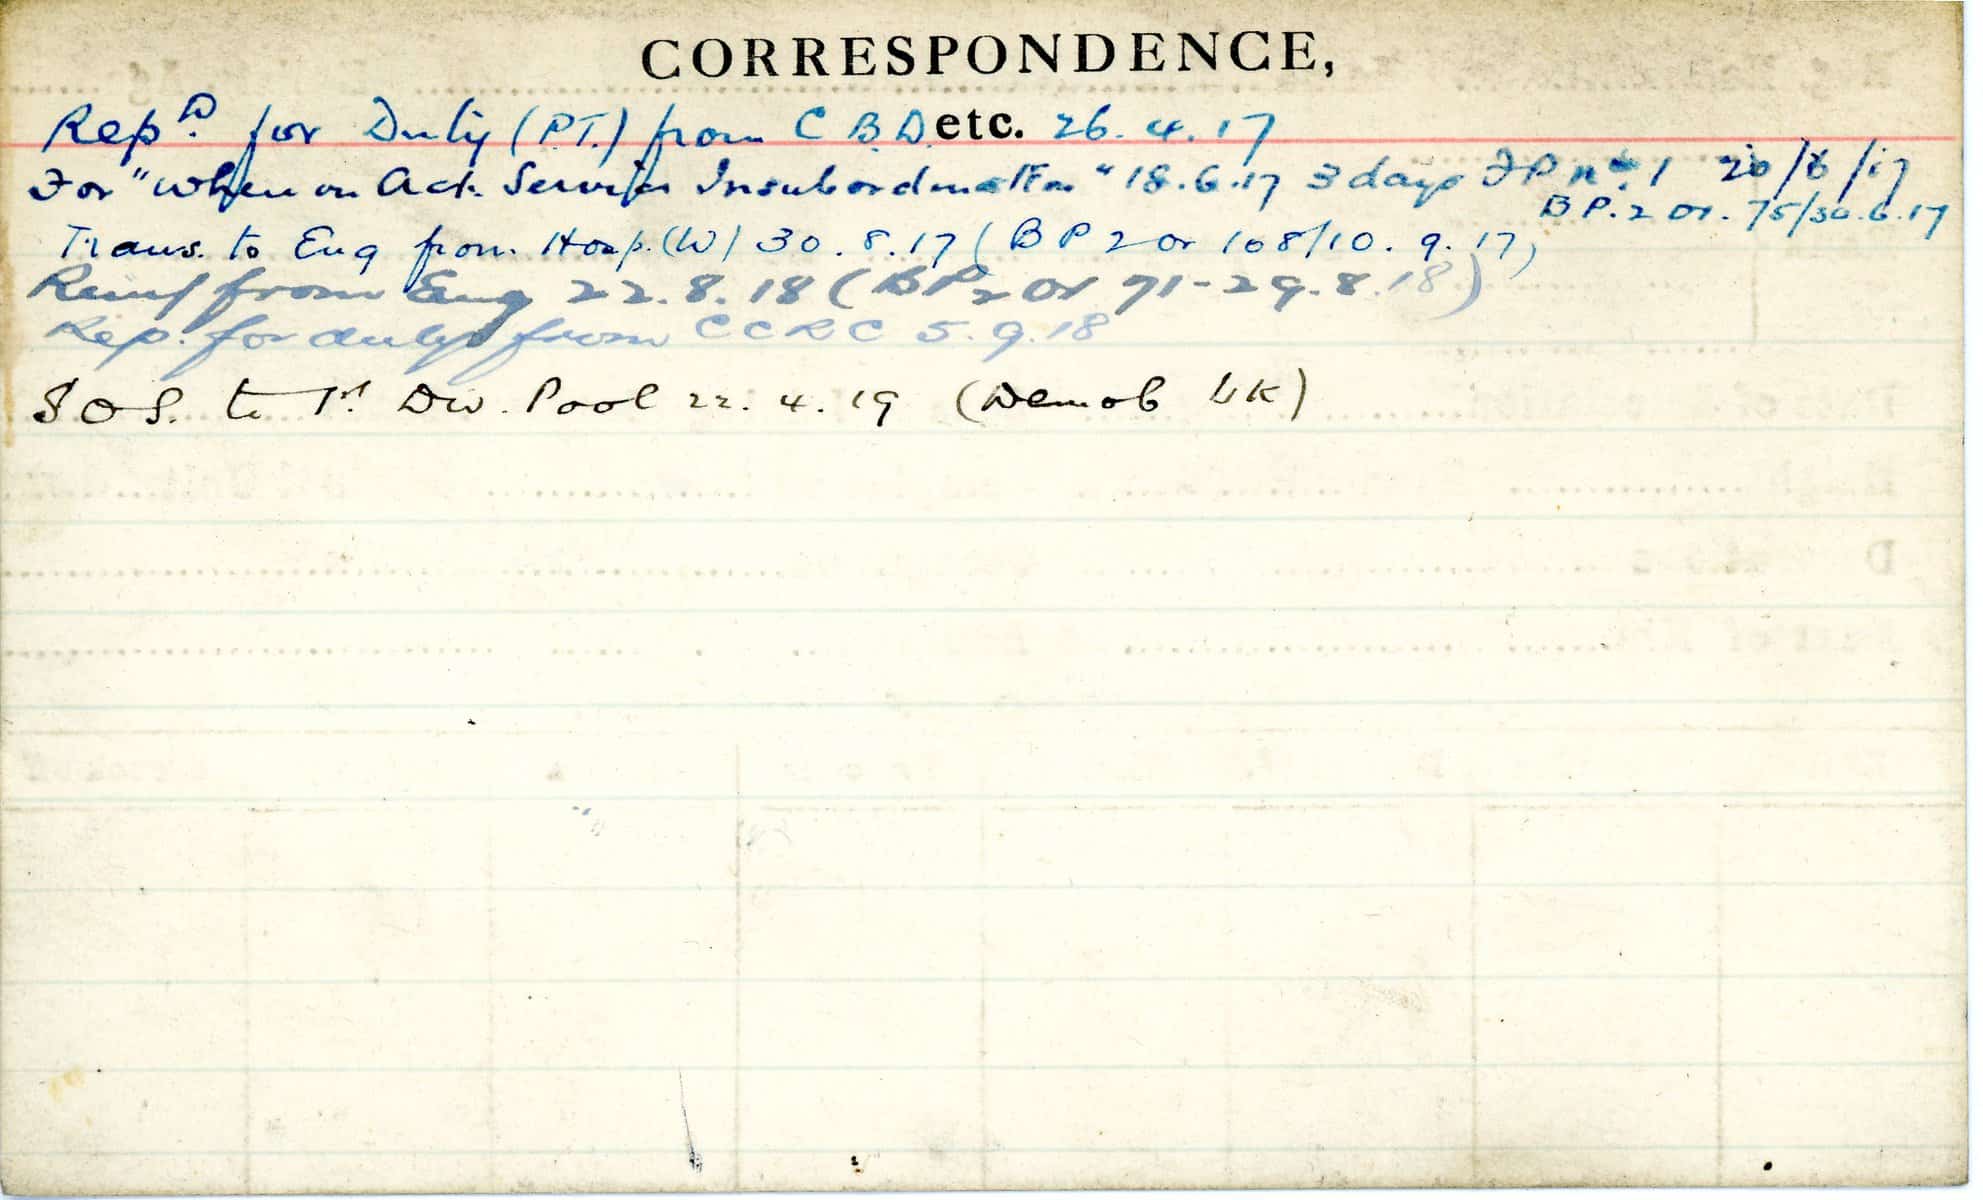 CORRESPONDENCE,
etc.
Rep.D for Duty (P.T.) from C B D 26.4.17
For "When on Act. Service Insubordination" 18.6.17 3 days F P No. 1 20/6/17
B P. 2 Or. 75/30.6.17
Trans. to Eng from Hosp. (W) 30.8.17 (B P 2 Or 108/10.9.17)
Reinf from Eng 22.8.18 (BP2 Or 71-29.8.18)
Rep. for duty from C C R C 5.9.18
S O S. to 1st Div. Pool 22.4.19 (Demob UK)